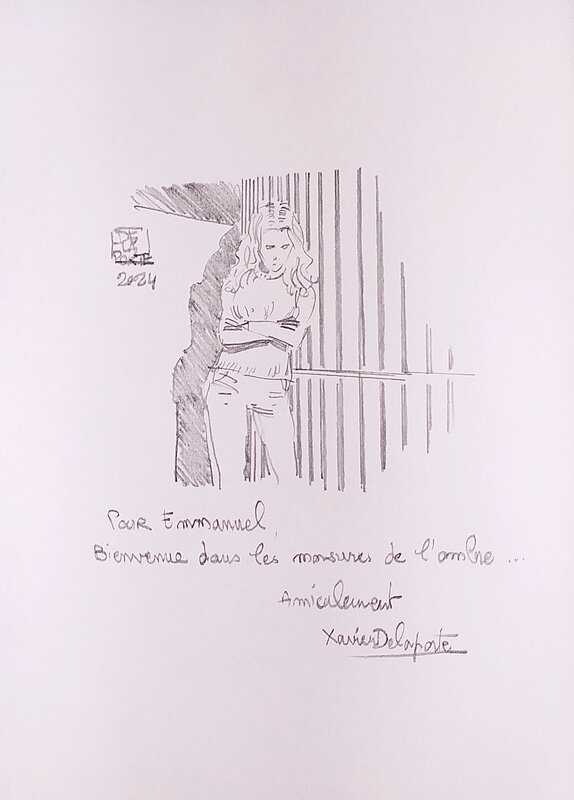 PORTE
2024
Pour Emmanuel,
Bienvenue dans les morsures de l'ombre ...
Amicalement
Xavier Delaporte